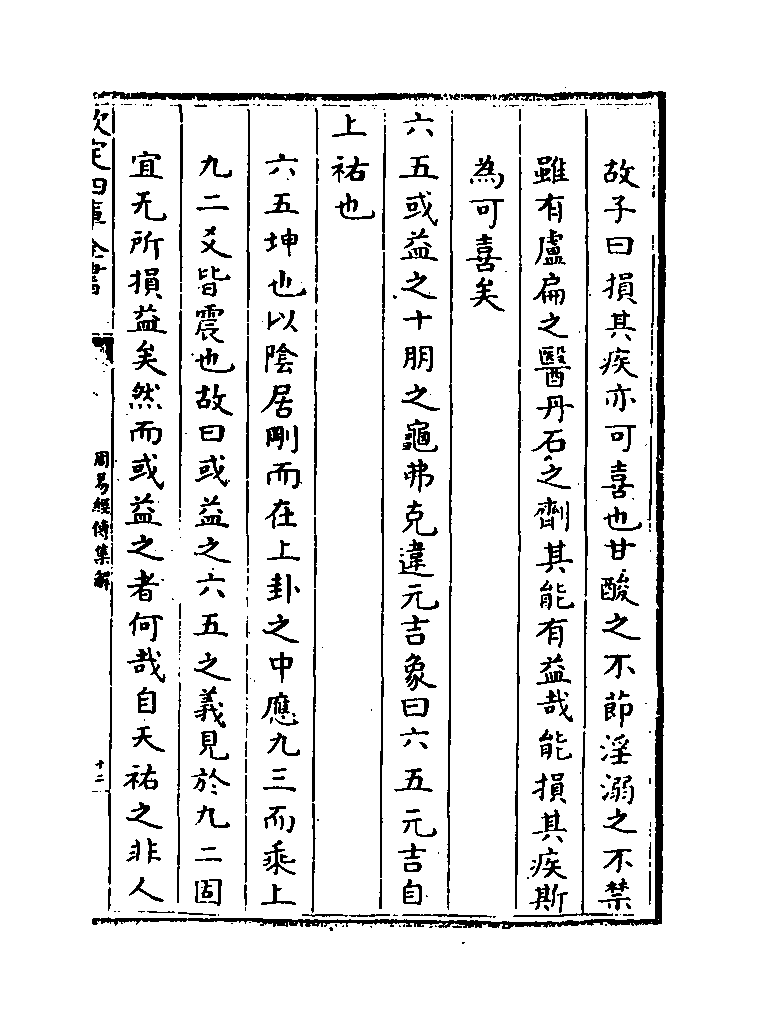 故子曰損其疾亦可喜也甘酸之不節淫溺之不禁
雖有盧扁之醫丹石之劑其能有益哉能損其疾斯
為可喜矣
六五或益之十朋之龜弗克違元吉象曰六五元吉自
上祐也
六五坤也以陰居剛而在上卦之中應九三而乘上
九二爻皆震也故曰或益之六五之義見於九二固
宜无所損益矣然而或益之者何哉自天祐之非人
欽定四庫全書
周易經傳集解
十二